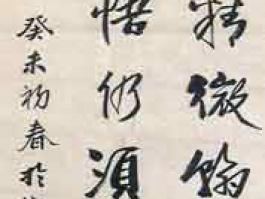 精微翰
悟仍須
癸未初春於